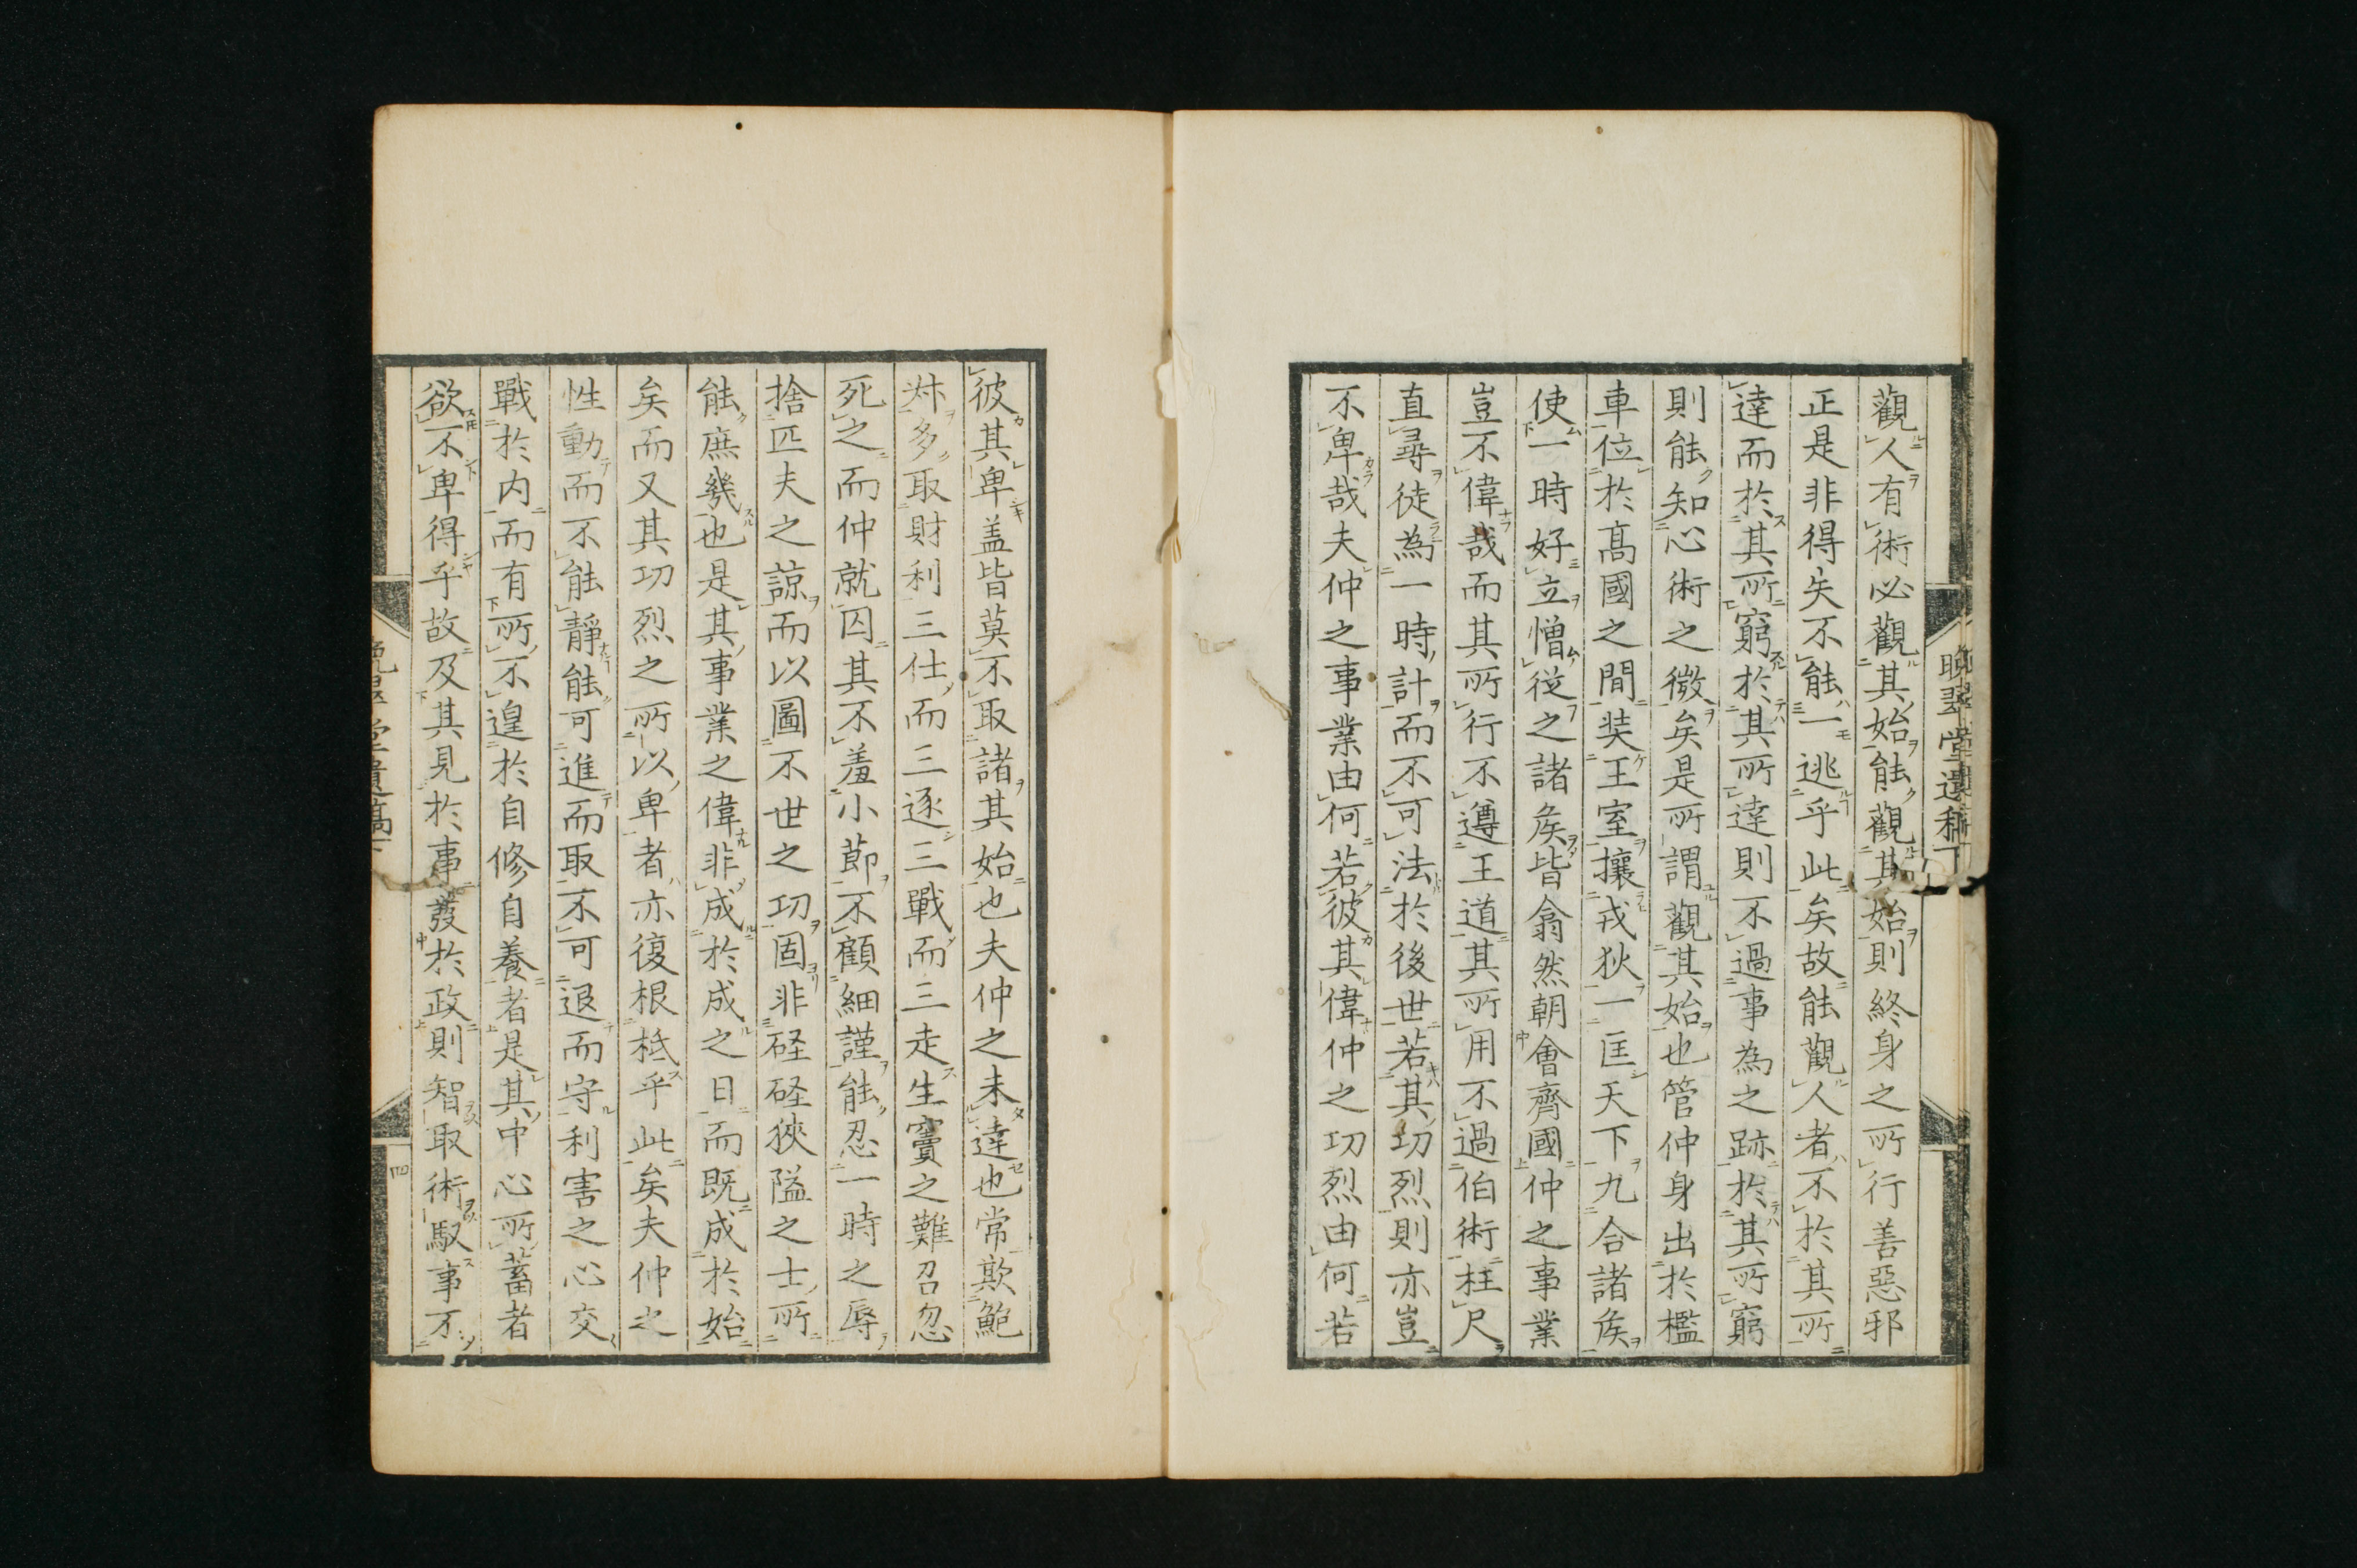 晩翠堂遺稿下
觀人有術必觀其始能觀其始則終身之所行善惡邪
正是非得失不能一逃乎此矣故能觀人者不於其所
達而於其所窮於其所達則不過事為之跡於其所窮
則能知心術之微矣是所謂觀其始也管仲身出於檻
車位於高國之間奘王室攘戎狄一匡天下九合諸矦
使一時好立憎從之諸矦皆翕然朝會齊國仲之事業
豈不偉哉而其所行不遵王道其所用不過伯術枉尺
直尋徒為一時計而不可法於後世若其功烈則亦豈
不卑哉夫仲之事業由何若彼其偉仲之功烈由何若
彼其卑盖皆莫不取諸其始也夫仲之未達也常欺鮑
尗多取財利三仕而三逐三戰而三走生竇之難召忽
死之而仲就囚其不羞小節不顧細謹能忍一時之辱
捨匹夫之諒而以圖不世之功固非硜硜狹隘之士所
能庶幾也是其事業之偉非成於成之日而既成於始
矣而又其功烈之所以卑者亦復根柢乎此矣夫仲之
性動而不能靜能可進而取不可退而守利害之心交
戰於内而有所不遑於自修自養者是其中心所蓄者
欲不卑得乎故及其見於事發於政則智取術馭事不
晩翠堂遺稿下
四